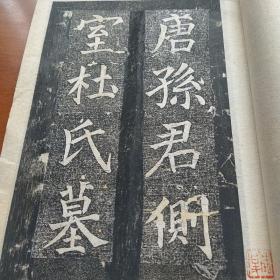 唐孫君側
室杜氏墓